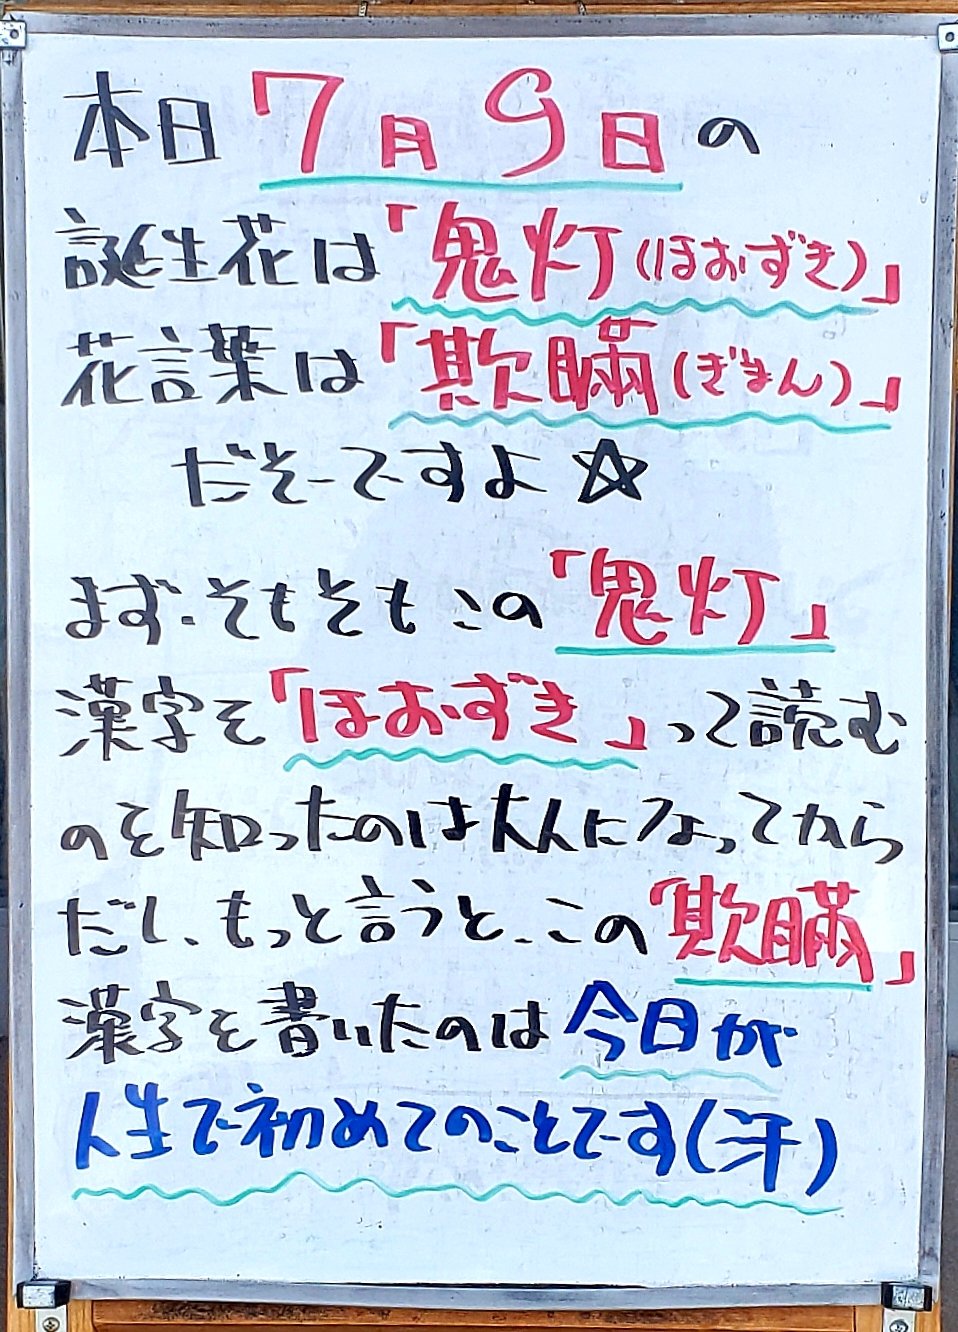 本日7月9日の
誕生花は「鬼灯(ほおずき)」
花言葉は「欺瞞(ぎまん)」
だそーですよ☆
まず、そもそもこの「鬼灯」
漢字を「ほおずき」って読む
のを知ったのは大人になってから
だし、もっと言うと、この「欺瞞」
漢字を書いたのは今日が
人生で初めてのことです(汗)